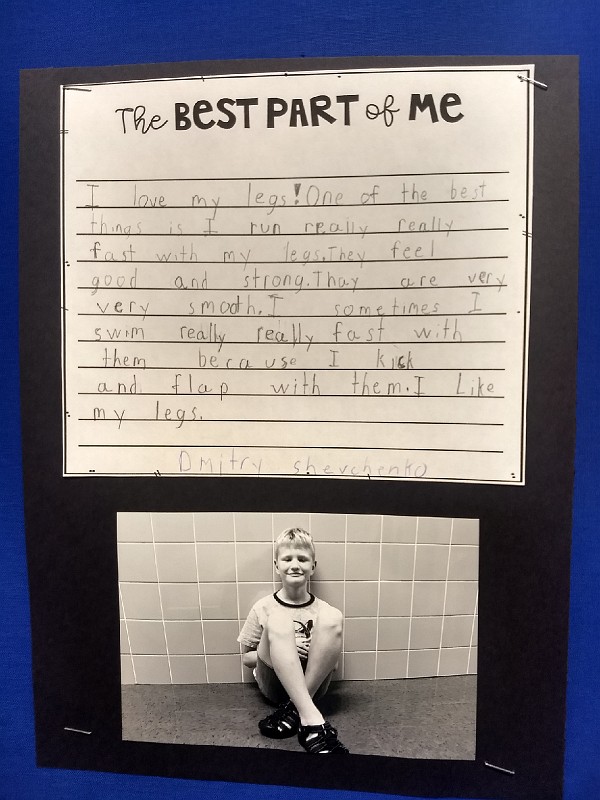 The BEST PART of ME
I love my legs! One of the best
things is I run really really
fast with my legs. They feel
good and strong. Thay are very
very smooth. I sometimes I
swim really really fast with
them becrause I kick
and flap with them. I Like
my legs.
Dmitry shevchenko